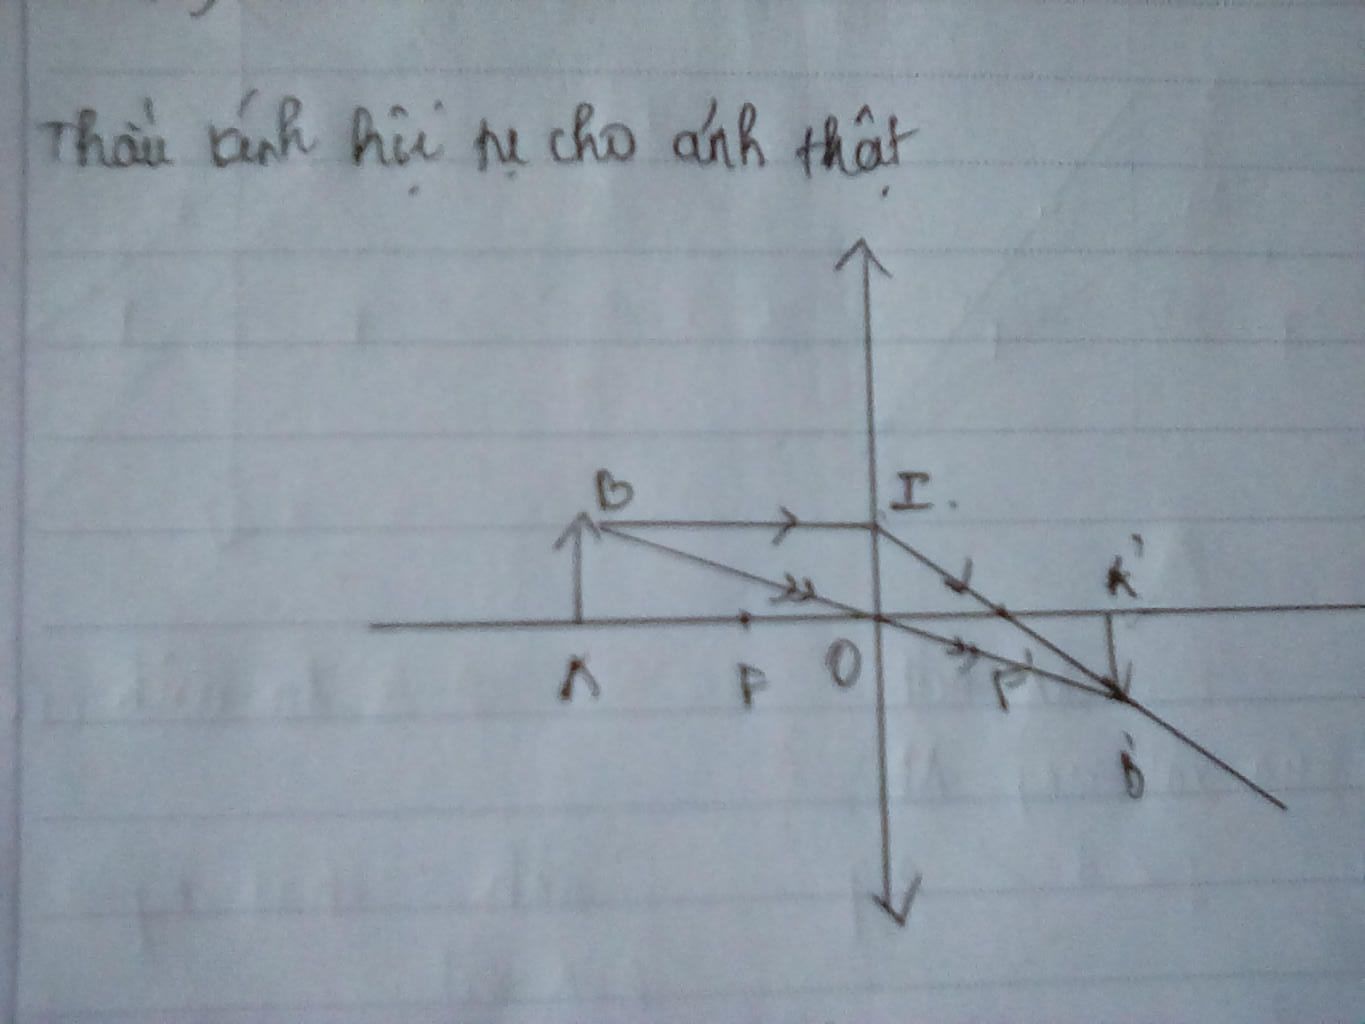 Thấu kính hội tụ cho ảnh thật
B
I
A'
A
F
O
F'
B'